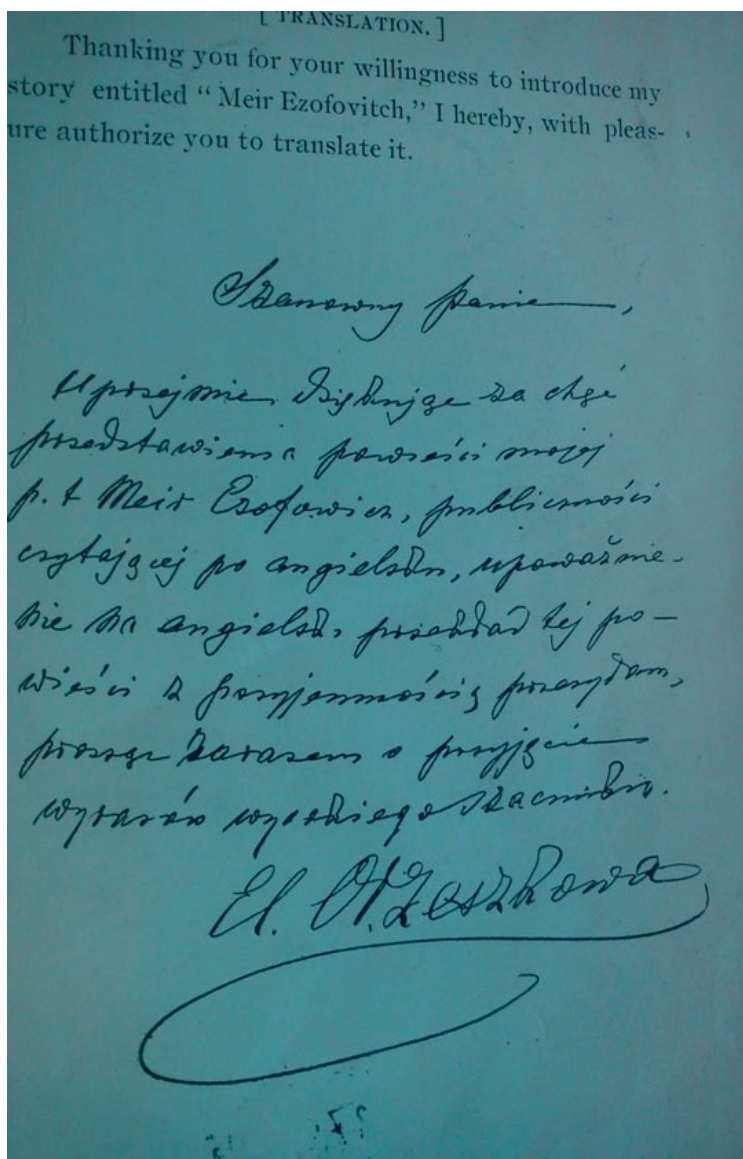 [ TRANSLATION. ]
Thanking you for your willingness to introduce my
story entitled “ Meir Ezofovitch,” I hereby, with pleas-
ure authorize you to translate it.
Szanowny Panie,
Uprzejmie dziękując za chęć
przedstawienia powieści mojej
p. t Meir Ezofowicz, publiczności
czytającej po angielsku, upoważnie-
nie na angielski przekład tej po-
wieści z przyjemnością przesyłam,
prosząc zarazem o przyjęcie
wyrazów wysokiego szacunku.
El. Orzeszkowa